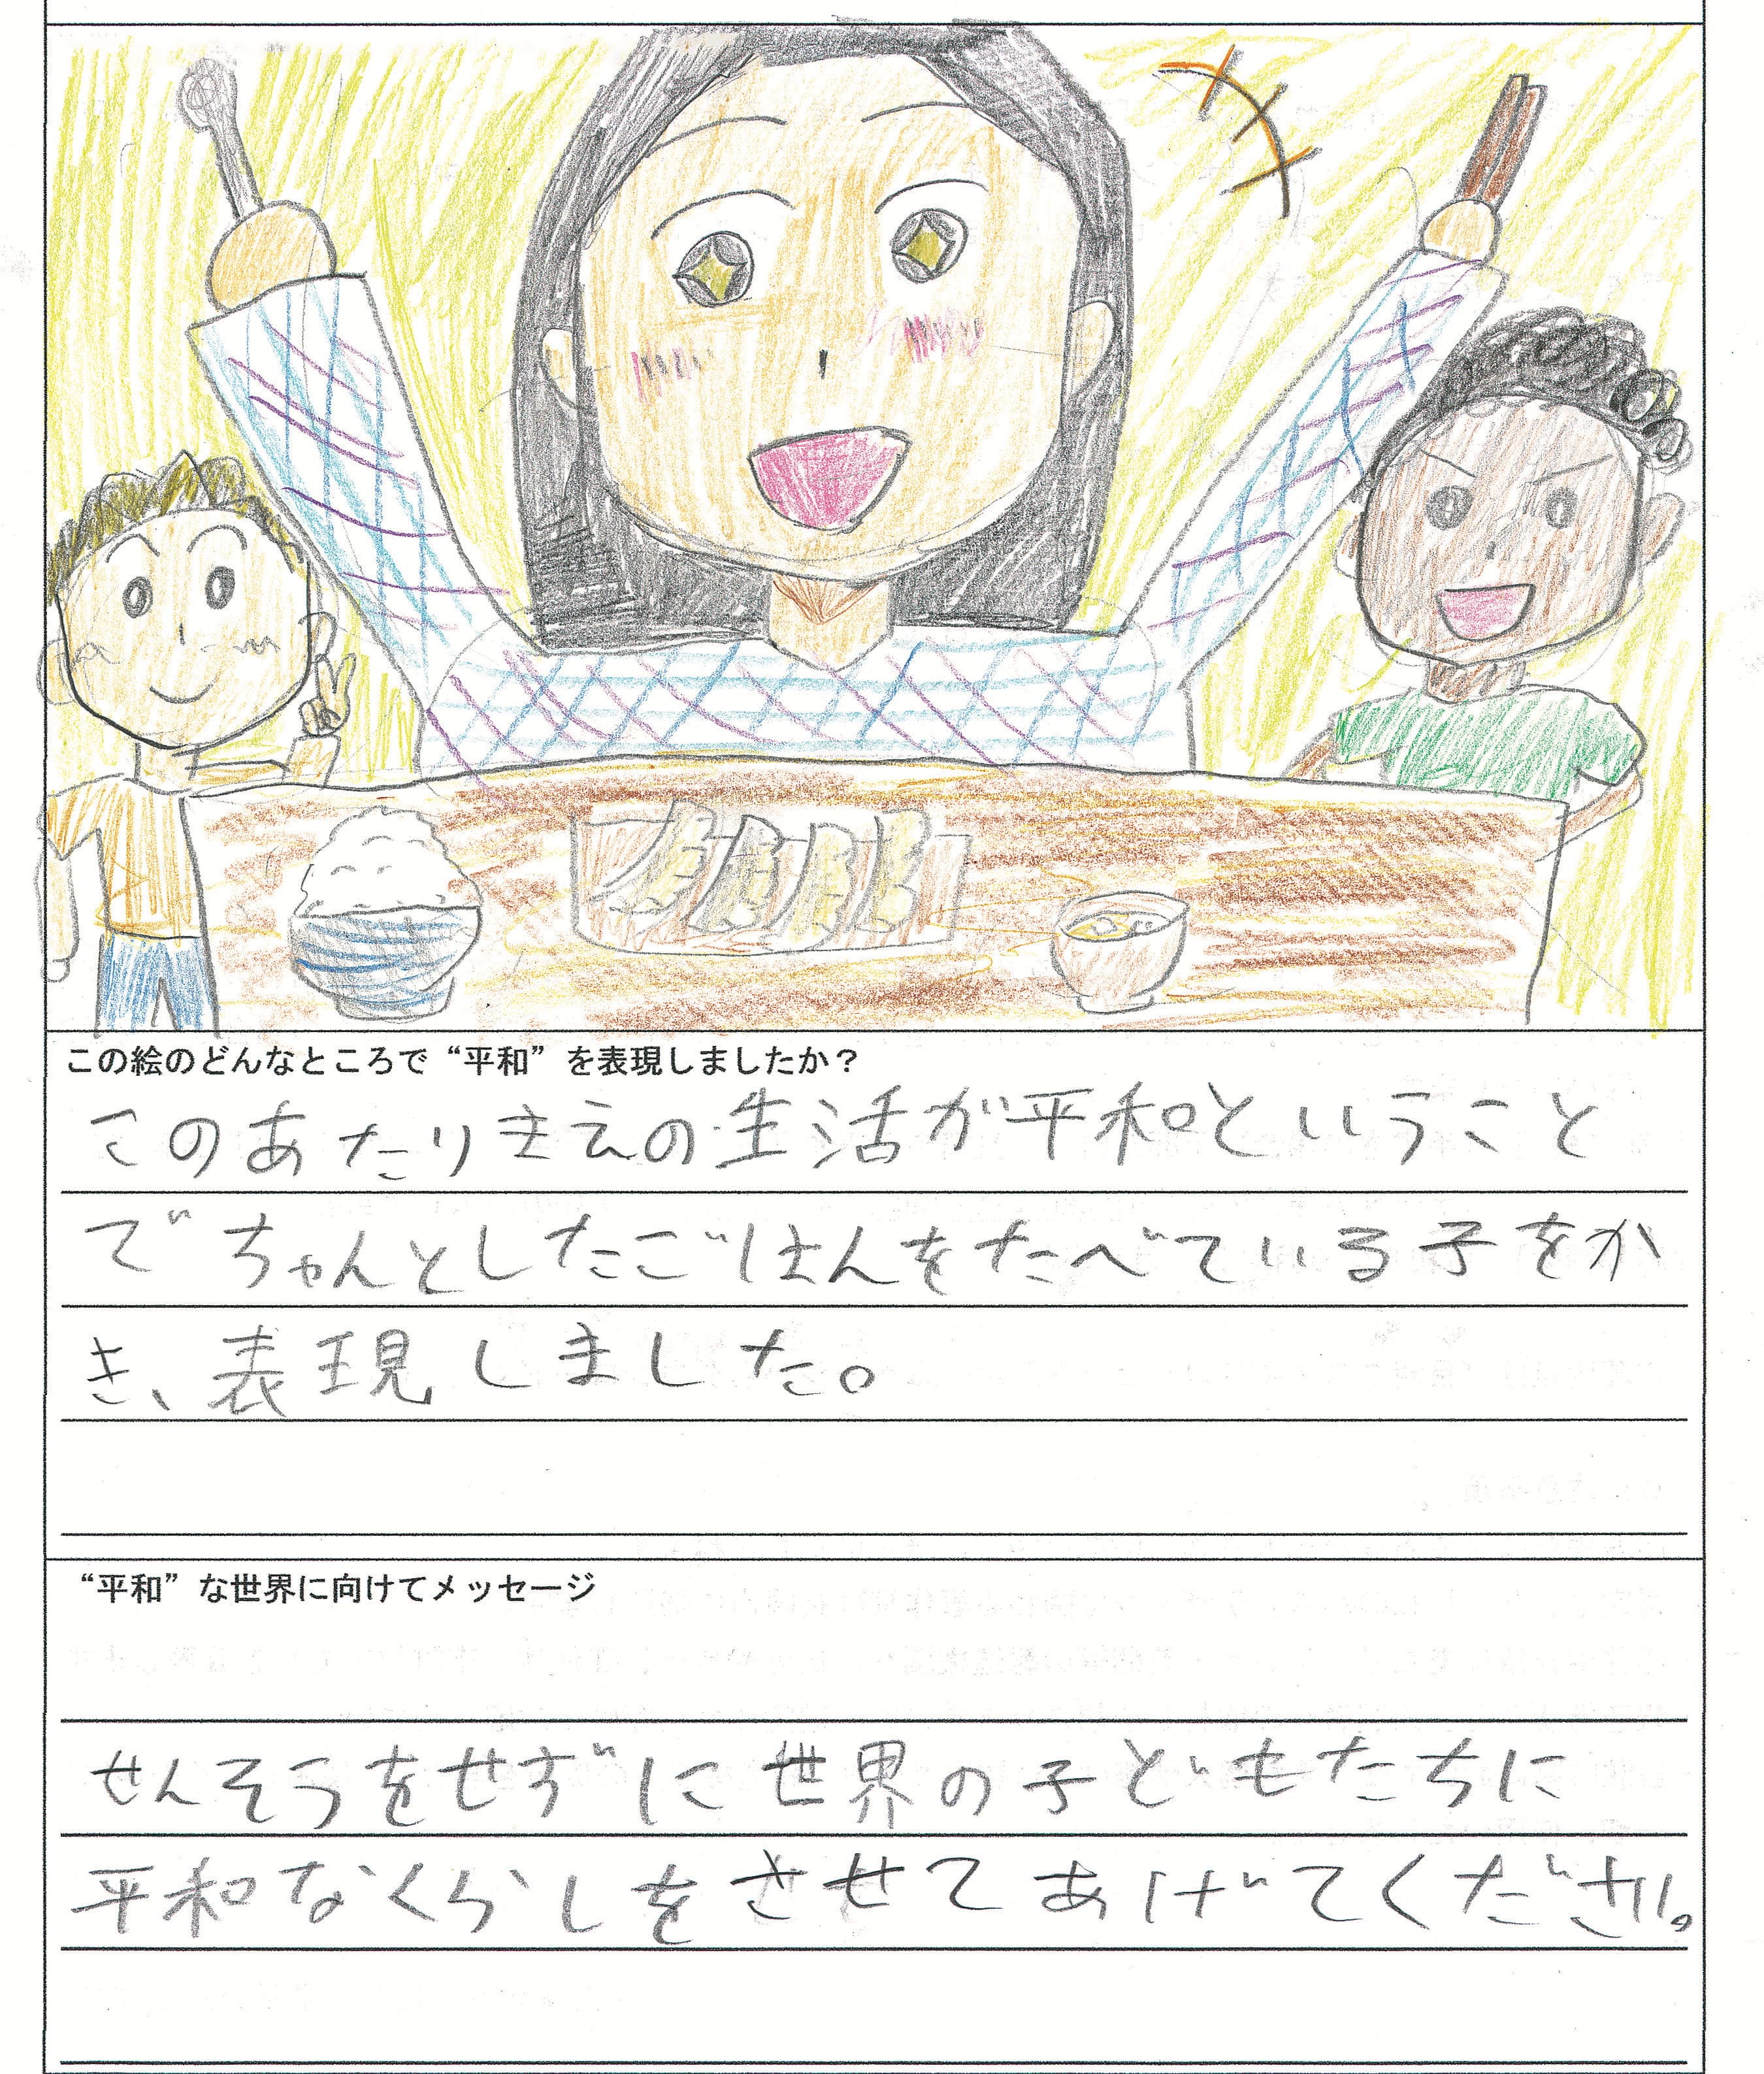 この絵のどんなところで“平和”を表現しましたか？
このあたりまえの生活が平和ということ
でちゃんとしたごはんをたべている子をか
き、表現しました。
“平和”な世界に向けてメッセージ
せんそうをせずに世界の子どもたちに
平和なくらしをさせてあげてください。